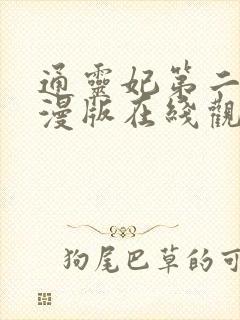 通靈妃第二
漫版在綫觀
狗尾巴草的可